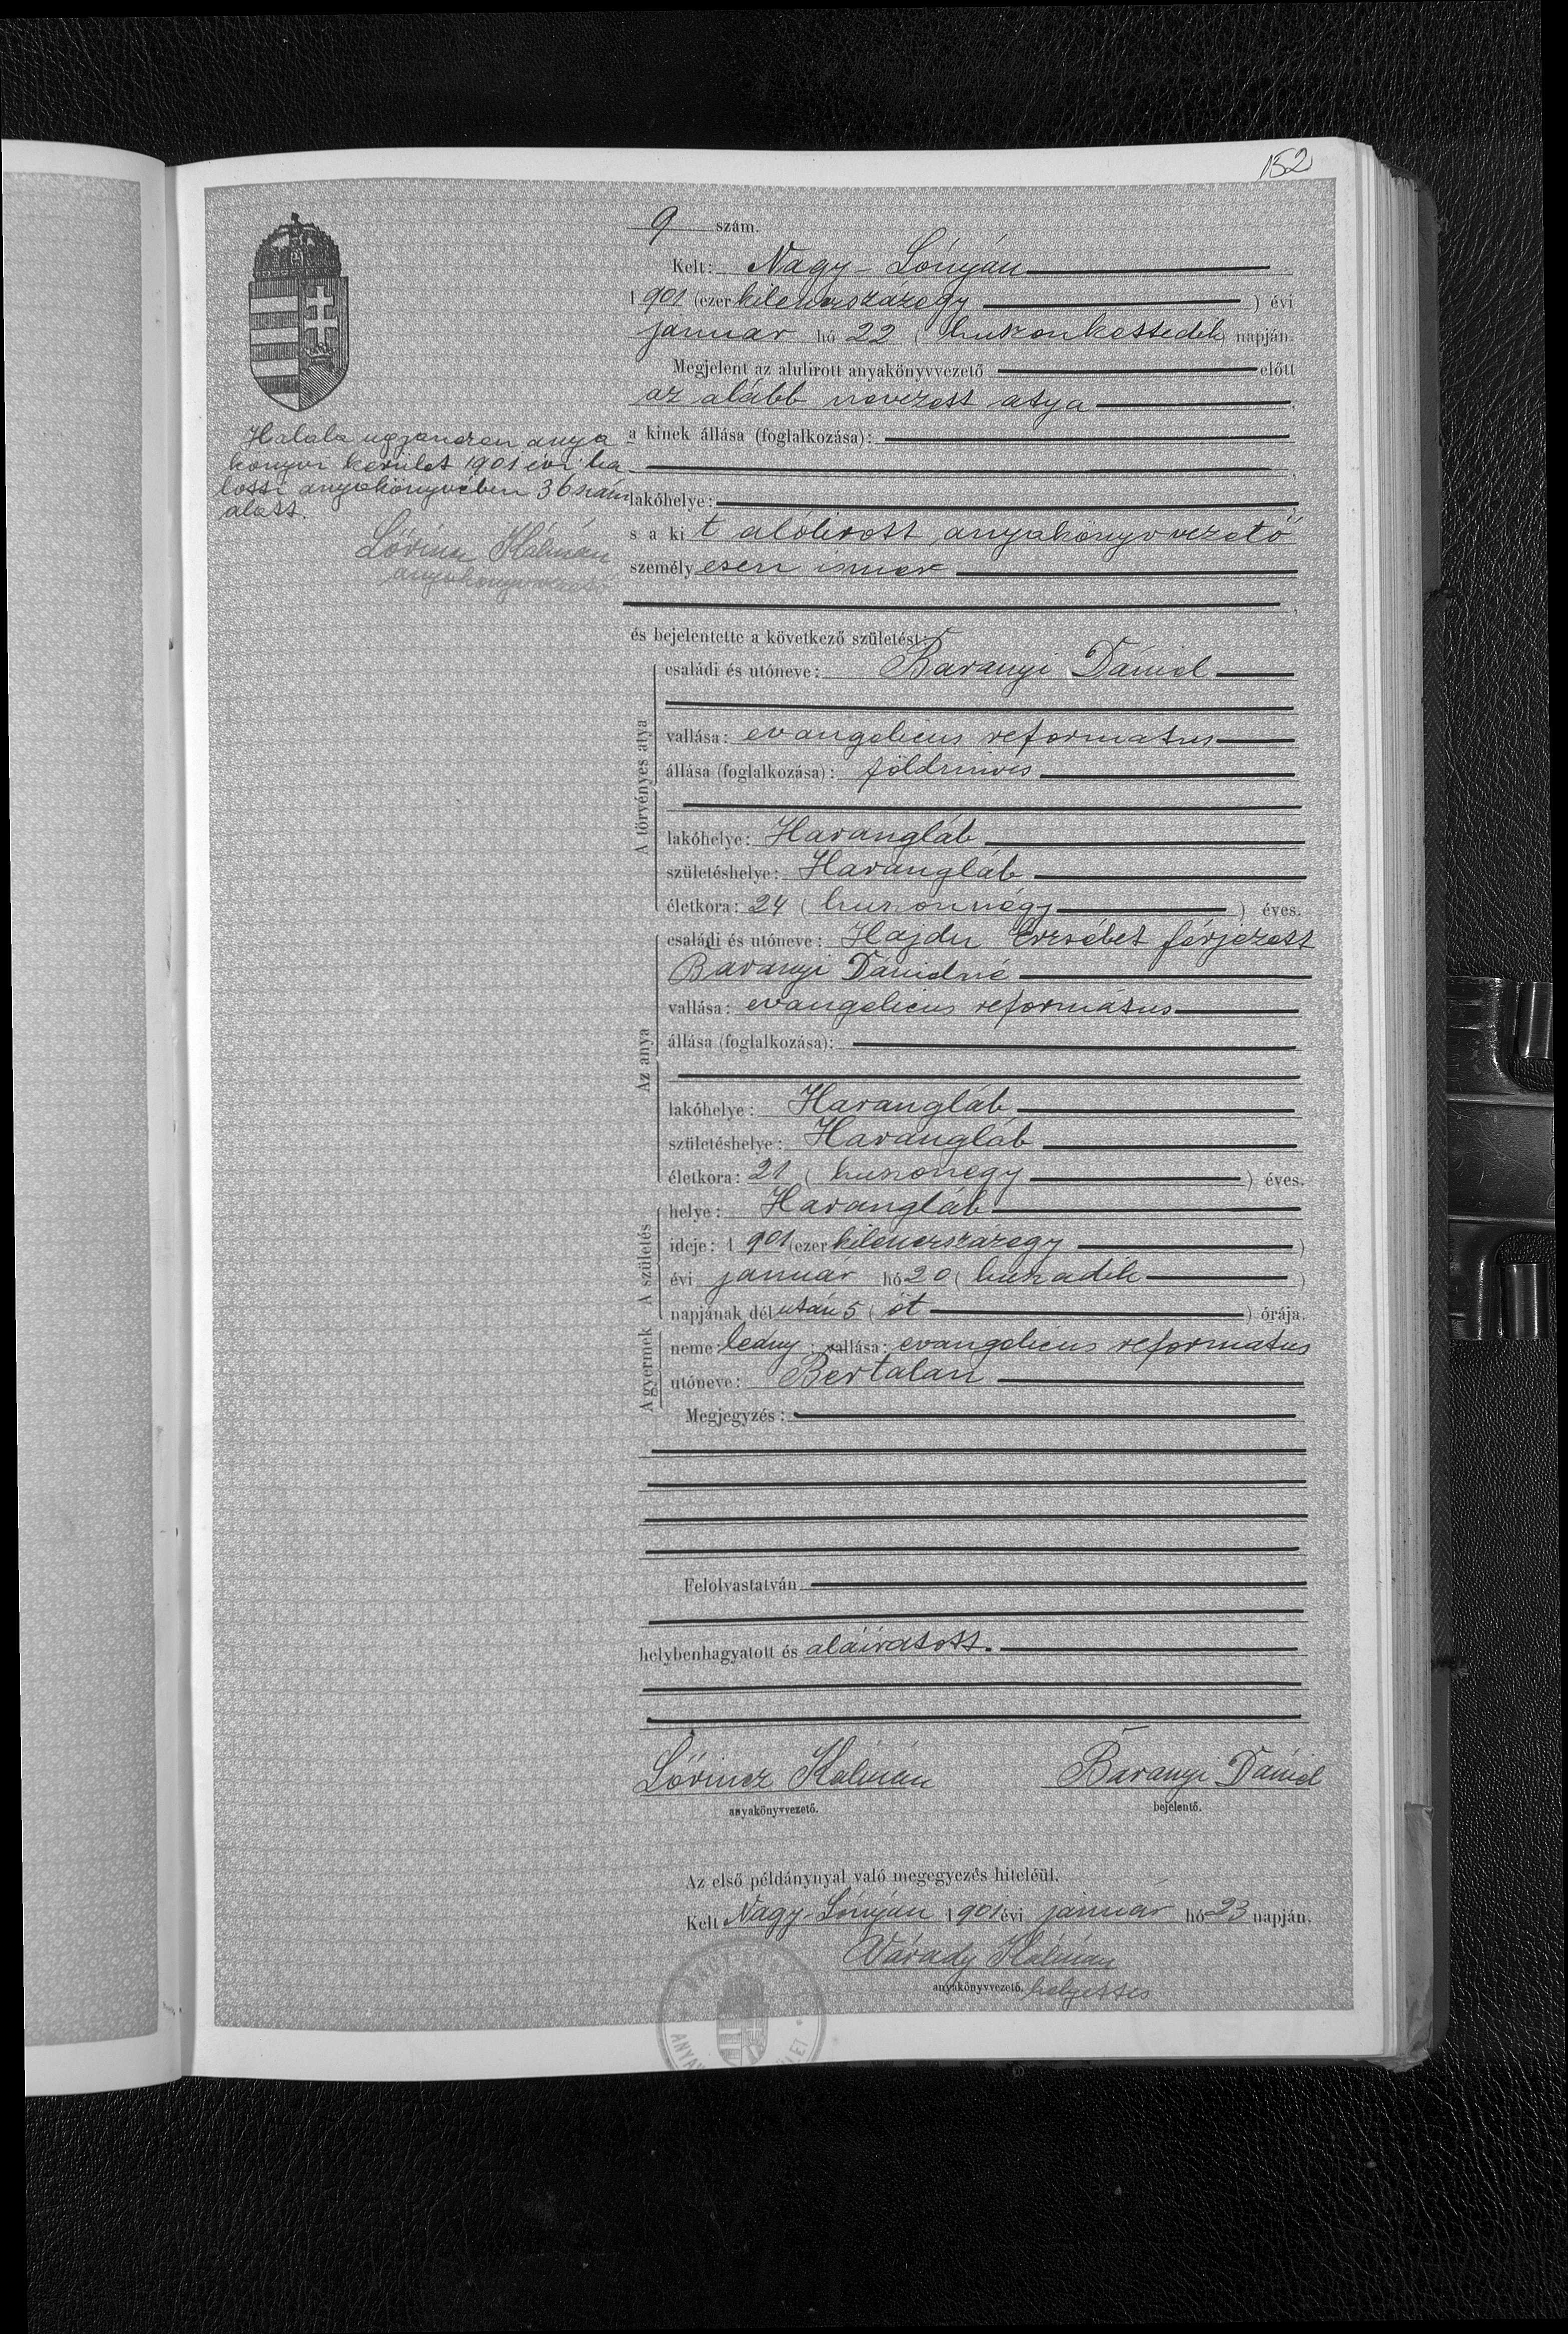 152
9 szám.
Kelt: Nagy-Lónyán
1901 (ezer kilenczszázegy) évi
január hó 22 (huszonkettedik) napján.
Megjelent az alulirott anyakönyvvezető előtt
az alább nevezett atya,
a kinek állása (foglalkozása):
lakóhelye:
s a kit alólirott anyakönyvvezető
személyesen ismer
és bejelentette a következő születést:
A törvényes atya
családi és utóneve: Baranyi Dániel
vallása: evangelicus reformatus
állása (foglalkozása): földmives
lakóhelye: Harangláb
születéshelye: Harangláb
életkora: 24 (huszonnégy) éves.
Az anya
családi és utóneve: Hajdu Erzsébet férjezett
Baranyi Dánielné
vallása: evangelicus református
állása (foglalkozása):
lakóhelye: Harangláb
születéshelye: Harangláb
életkora: 21 (huszonegy) éves.
A születés
helye: Harangláb
ideje: 1901 (ezer kilenczszázegy)
évi január hó 20 (huszadik)
napjának délután 5 (öt) órája.
A gyermek
neme: leány; vallása: evangelicus reformatus
utóneve: Bertalan
Megjegyzés:
Felolvastatván
helybenhagyatott és aláiratott.
Lőrincz Kálmán
anyakönyvvezető.
Baranyi Dániel
bejelentő.
Az első példánynyal való megegyezés hiteléül.
Kelt Nagy-Lónyán 1901 évi január hó 23 napján.
Várady Kálmán
anyakönyvvezető helyettes
Halála ugyanezen anya
könyvi kerület 1901 évi ha
lotti anyakönyvében 36 szám
alatt.
Lőrincz Kálmán
anyakönyvvezető